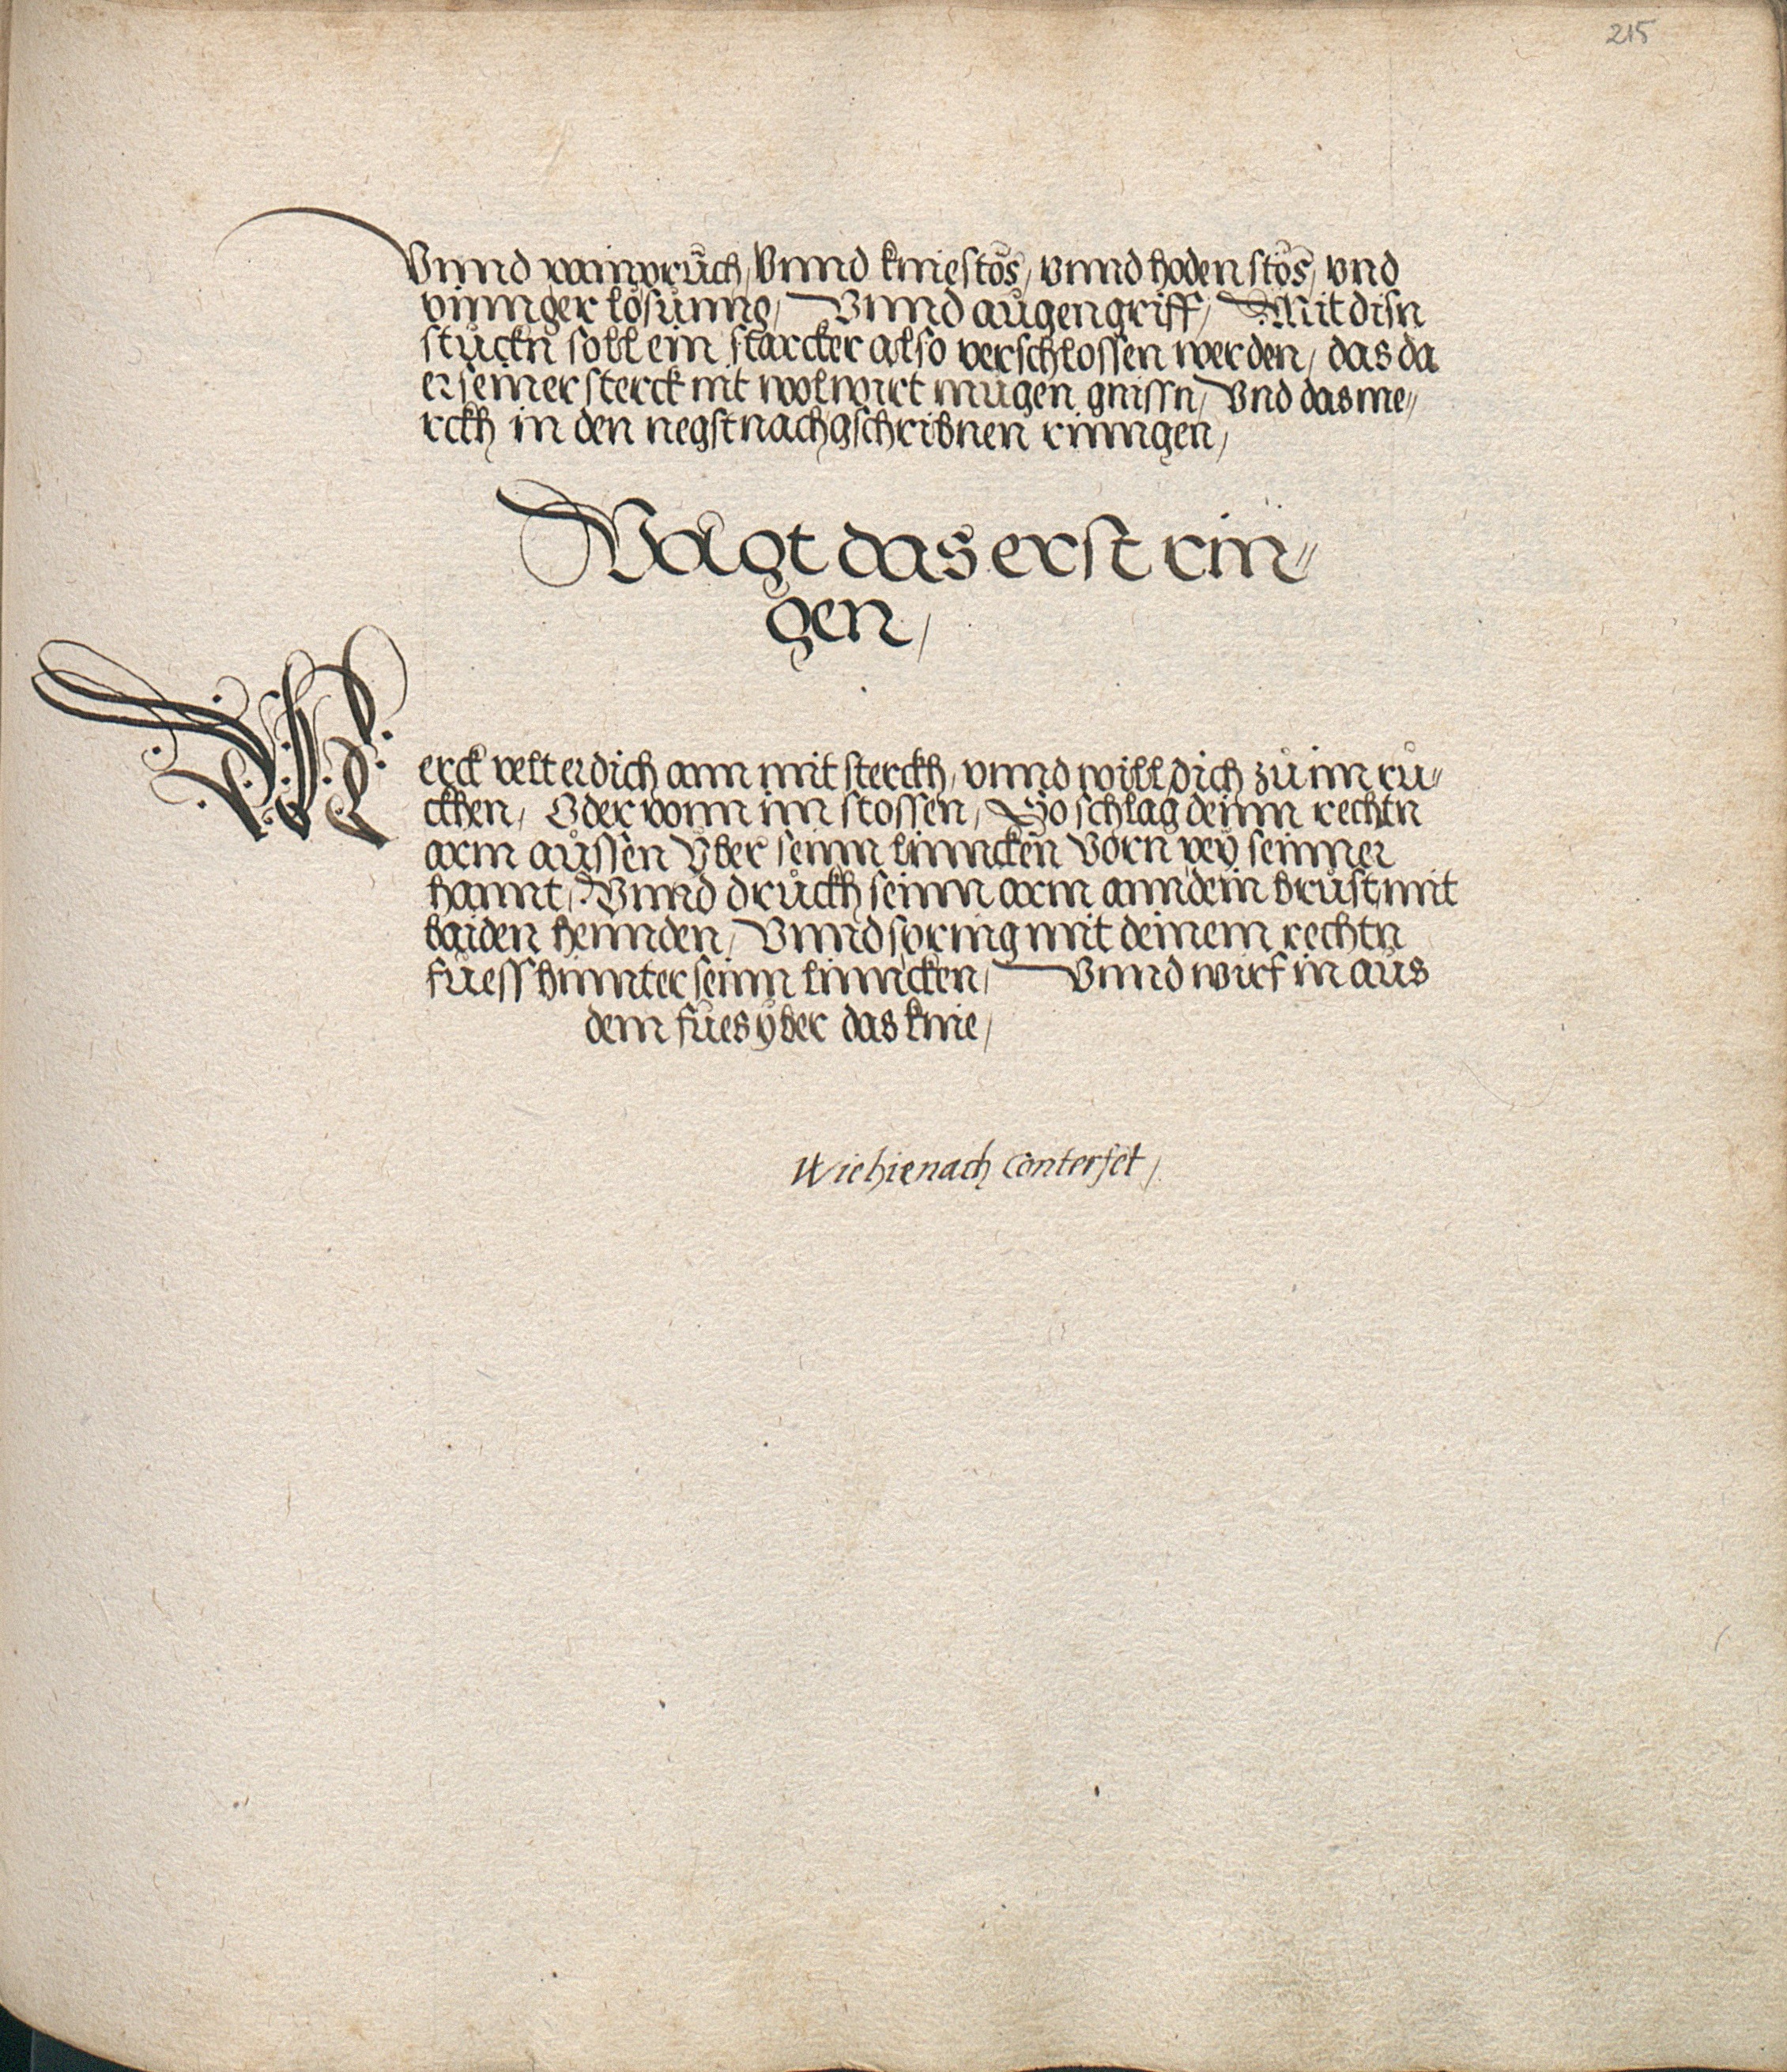 215
Vnnd painpruch, Vnnd kniestös, vnnd hodenstös, vnd
vinnger lösunng, Vnnd augengriff, Mit disn
stuckn soll ein starcker also verschlossen werden, das da
er seiner sterck nit wol wirt mugen gnissn, Vnd das me„
rckh in den negst nachgschribnen rinngen,
Volgt das erst rin„
gen,
M
erck velt er dich ann mit sterckh, vnnd will dich zů im ru„
ckhen, Oder vonn im stossen, So schlag deinn rechtn
arm aůssen Vber seinn linncken Vorn pey seinner
hannt, Vnnd drůckh seinn arm ann dein brust mit
baiden hennden, Vnnd spring mit deinem rechtn
fůess hinnter seinn linncken, Vnnd wirf in aůs
dem fůes yber das knie,
Wie hienach Conterfet,